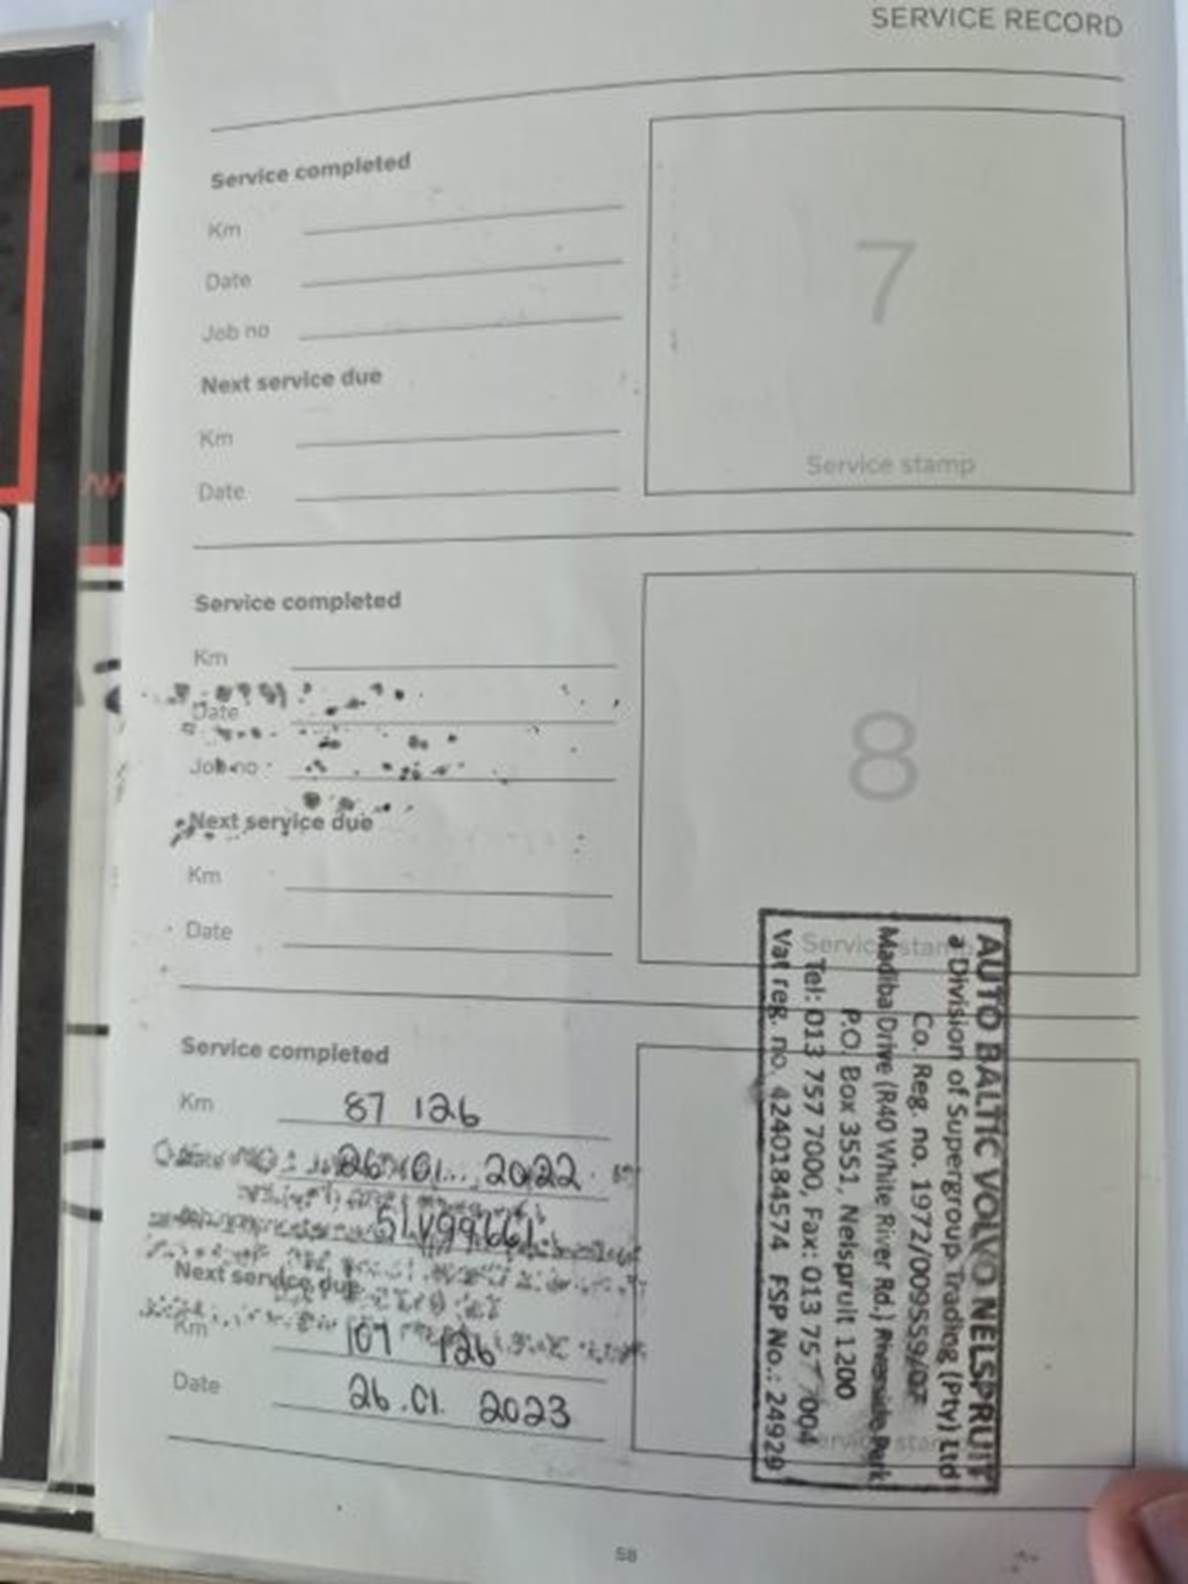 SERVICE RECORD
Service completed
Km
Date
Job no
Next service due
Km
Date
7
Service stamp
Service completed
Km
Date
Job no
Next service due
Km
Date
8
Service stamp
Service completed
Km 87 126
26.01. 2022
51V99661
Next service due
Km 107 126
Date 26.01. 2023
AUTO BALTIC VOLVO NELSPRUIT
a Division of Supergroup Trading (Pty) Ltd
Co. Reg. no. 1972/009559/07
Madiba Drive (R40 White River Rd.) Riverside Park
P.O. Box 3551, Nelspruit 1200
Tel: 013 757 7000, Fax: 013 757 7004
Vat reg. no. 4240184574 FSP No.: 24929
Service stamp
58